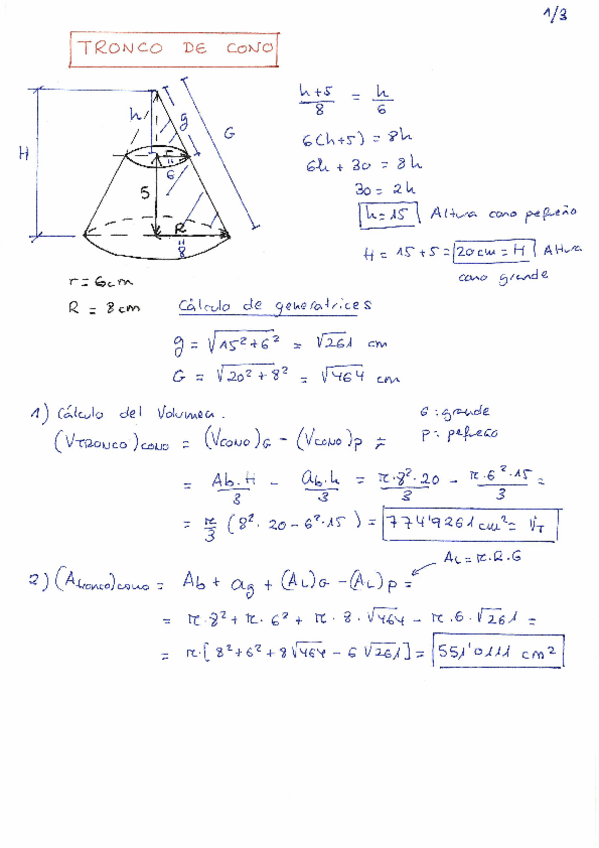 1/3
TRONCO DE CONO
h
g
G
H
r
=
6
5
R
=
8
r = 6cm
R = 8cm
h+5/8 = h/6
6(h+5) = 8h
6h + 30 = 8h
30 = 2h
h = 15 Altura cono pequeño
H = 15 + 5 = 20cm = H Altura
cono grande
Cálculo de generatrices
g = √15²+6² = √261 cm
G = √20²+8² = √464 cm
1) Cálculo del Volumen.
G: grande
p: pequeño
(VTRONCO)CONO = (VCONO)G - (VCONO)p =
= Ab.H/3 - ab.h/3 = π·8²·20/3 - π·6²·15/3 =
= π/3 (8²·20-6²·15) = 774'9261 cm² = VT
AL = π.R.G
2) (Atronco)cono = Ab + ag + (AL)G - (AL)p =
= π·8²+π·6²+π·8·√464 - π.6.√261 =
= π·[8²+6²+8√464 - 6√261] = 551'0111 cm²